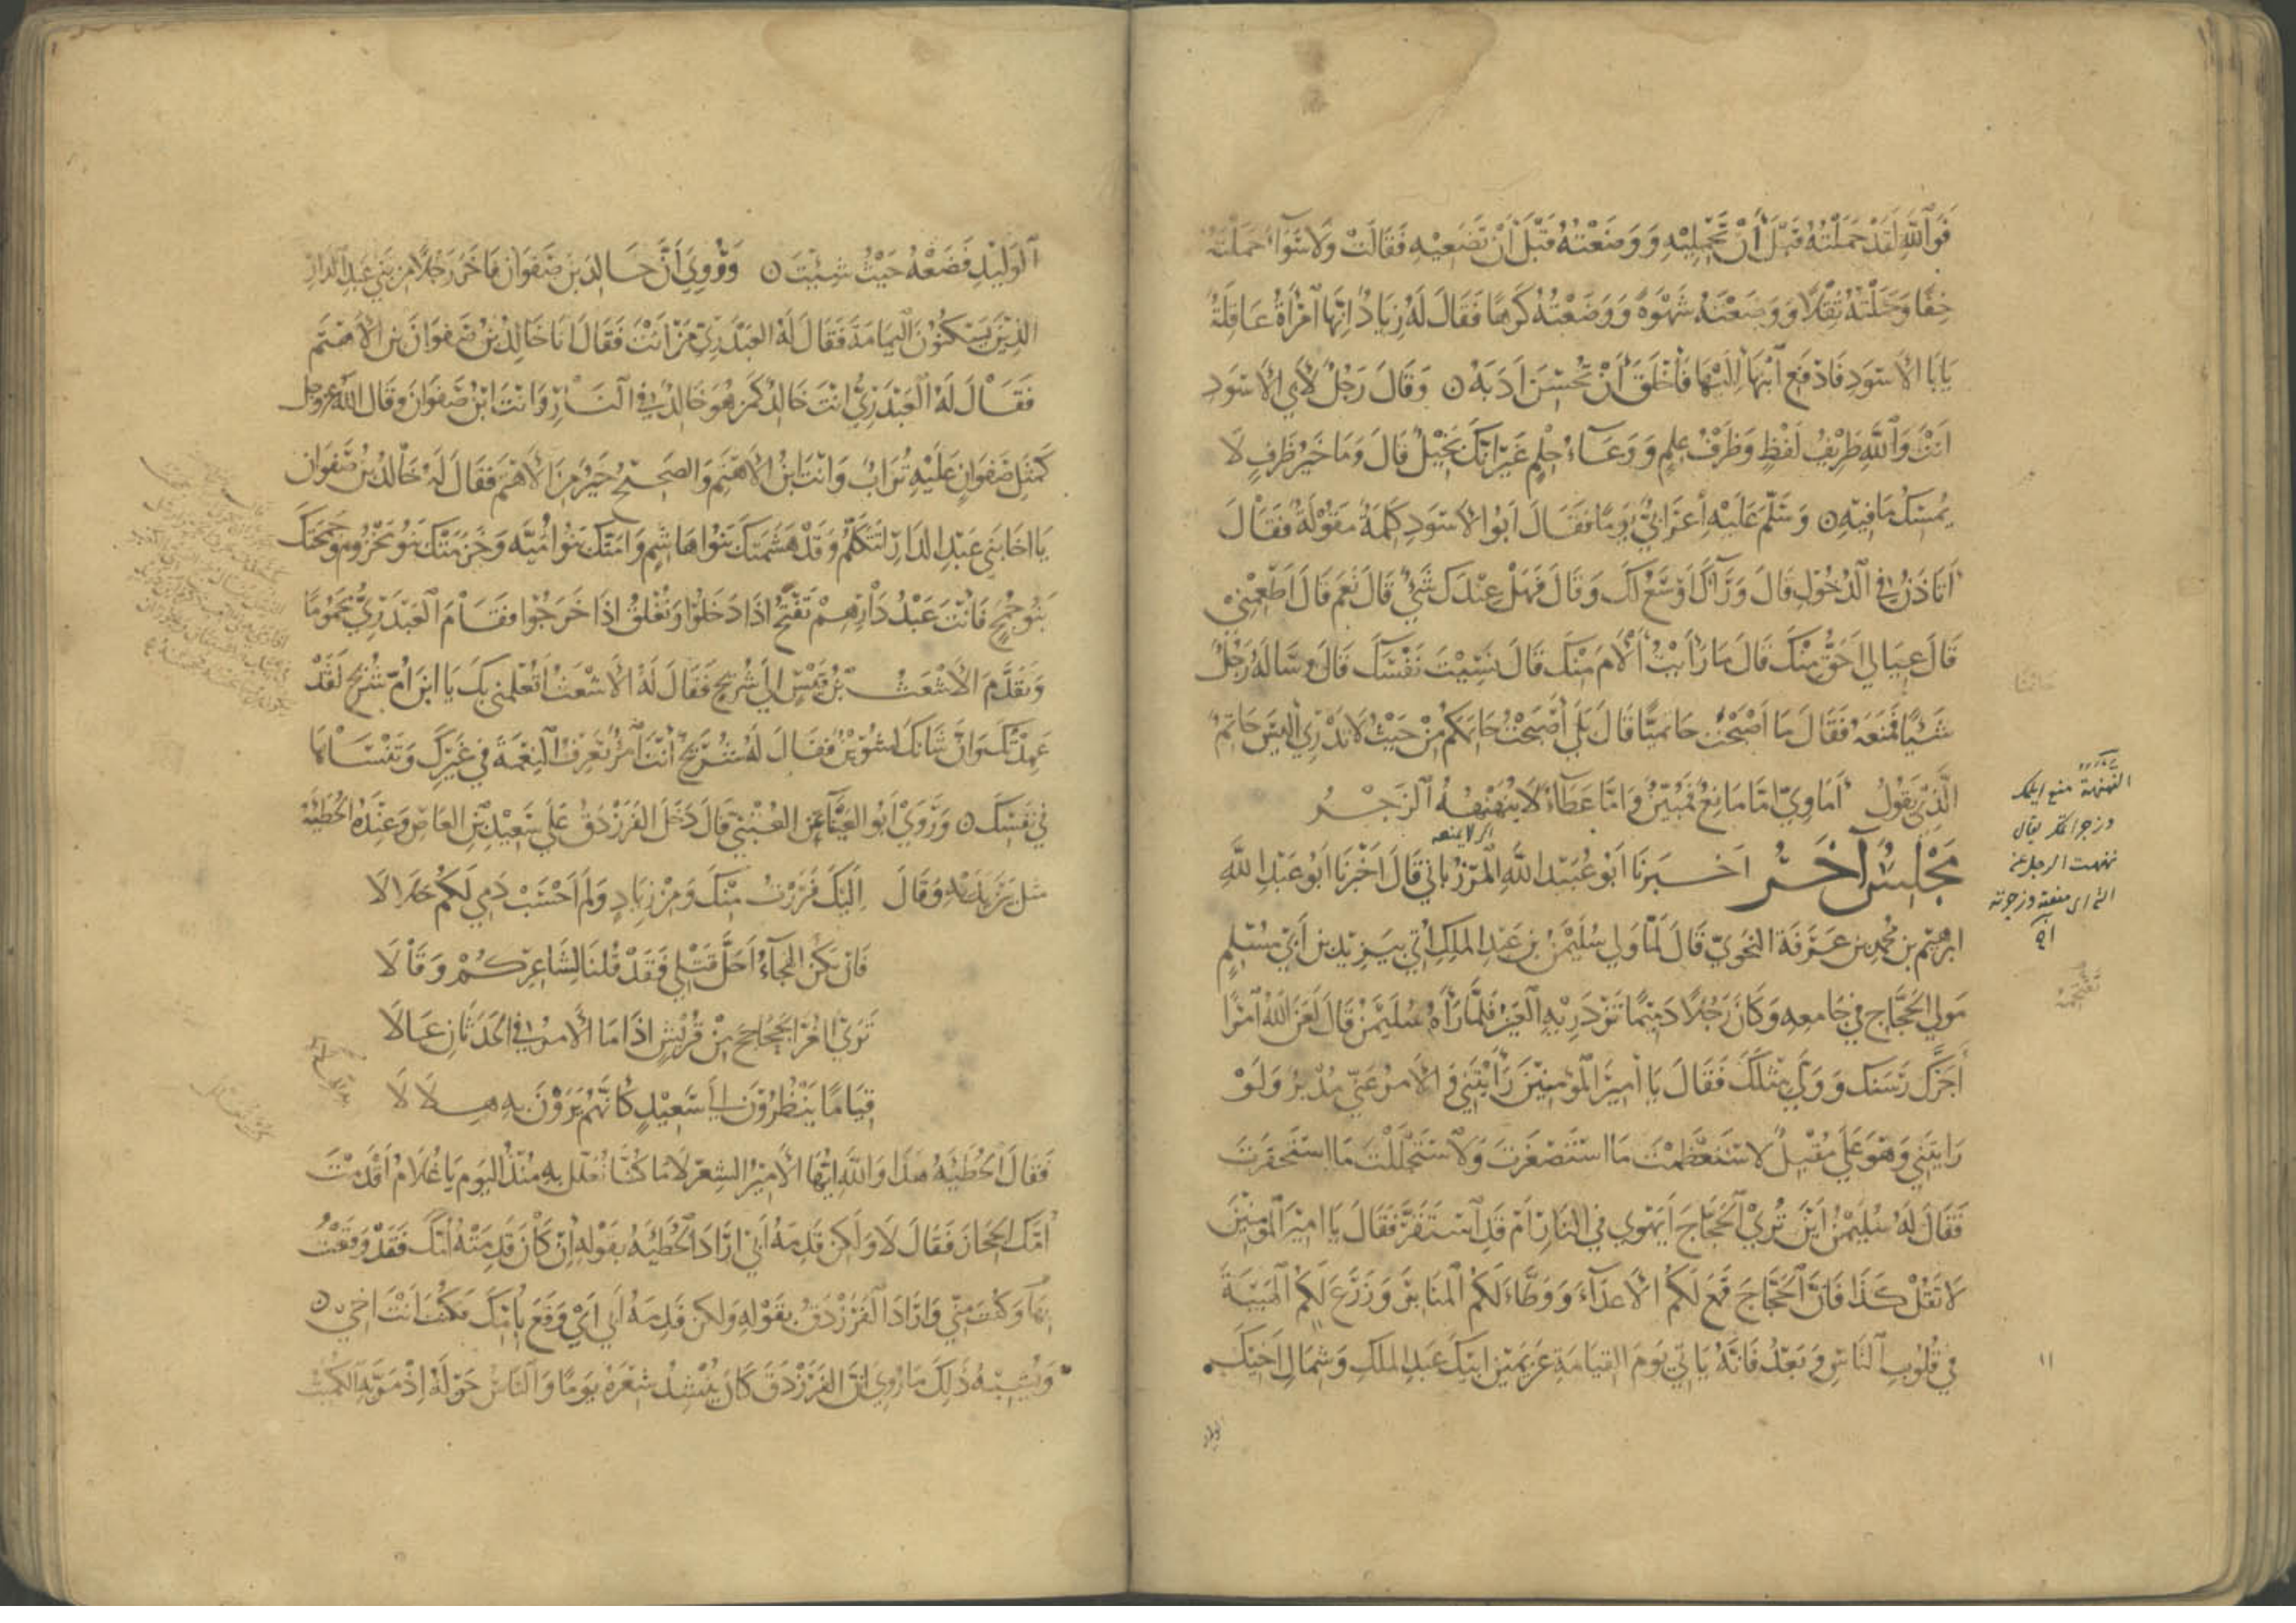 فَوَاللَّهِ لَقَدْ حَمَلْتُهُ قَبْلَ أَنْ تَحْمِلِيْهِ وَوَضَعْتُهُ قَبْلَ أَنْ تَضَعِيْهِ فَقَالَتْ وَلَا سَوَآءٌ حَمَلْتَهُ
خِفًّا وَحَمَلْتُهُ ثِقْلًا وَوَضَعْتَهُ شَهْوَةً وَوَضَعْتُهُ كَرْهًا فَقَالَ لَهُ زِيَادٌ إِنَّهَا امْرَأَةٌ عَاقِلَةٌ
يَابَا الْأَسْوَدِ فَادْفَعِ ابْنَهَا إِلَيْهَا فَأَخْلَقَ أَنْ تُحْسِنَ أَدَبَهُ ۝ وَقَالَ رَجُلٌ لِأَبِي الْأَسْوَدِ
أَنْتَ وَاللَّهِ ظَرِيْفُ لَفْظٍ وَظَرْفُ عِلْمٍ وَوِعَآءُ حِلْمٍ غَيْرَ أَنَّكَ بَخِيْلٌ قَالَ وَمَا خَيْرُ ظَرْفٍ لَا
يُمْسِكُ مَا فِيْهِ ۝ وَسَلَّمَ عَلَيْهِ أَعْرَابِيٌّ يَوْمًا فَقَالَ أَبُو الْأَسْوَدِ كَلِمَةٌ مَقُوْلَةٌ فَقَالَ
أَتَأْذَنُ فِي الدُّخُوْلِ قَالَ وَرَآئَكَ أَوْسَعُ لَكَ وَقَالَ فَهَلْ عِنْدَكَ شَيْءٌ قَالَ نَعَمْ قَالَ أَطْعِمْنِيْ
قَالَ عِيَالِي أَحَقُّ مِنْكَ قَالَ مَا رَأَيْتُ أَلْأَمَ مِنْكَ قَالَ نَسِيْتَ نَفْسَكَ قَالَ وَسَأَلَهُ رَجُلٌ
شَيْئًا فَمَنَعَهُ فَقَالَ مَا أَصْبَحْتَ حَاتِمِيًّا قَالَ بَلَى أَصْبَحْتُ حَاتِمَكُمْ مِنْ حَيْثُ لَا تَدْرِي أَلَيْسَ حَاتِمٌ
الَّذِيْ يَقُولُ أَمَاوِيَّ إِمَّا مَانِعٌ فَمُبَيِّنٌ وَإِمَّا عَطَاءٌ لَا يُنَهْنِهُهُ الزَّجْرُ
مَجْلِسٌ آخَرُ أَخْبَرَنَا أَبُوْ عُبَيْدِ اللَّهِ الْمَرْزُبَانِي قَالَ أَخْبَرَنَا أَبُوْ عَبْدِ اللَّهِ
ابرهيم بن مُحَمَّدِ بن عَرَفَةَ النَّحْوِيّ قَالَ لَمَّا وَلِي سُلَيْمٰنُ بْنُ عَبْدِ الْمَلِكِ أُتِي بِيَزِيْدَ بن أَبِي مُسْلِمٍ
مَوْلَى الْحَجَّاجِ فِي جَامِعِهِ وَكَانَ رَجُلًا دَمِيْمًا تَزْدَرِيْهِ الْعَيْنُ فَلَمَّا رَآهُ سُلَيْمٰنُ قَالَ لَعَنَ اللَّهُ امْرَأً
أَجَرَّكَ رَسَنَكَ وَوَلَّى مِثْلَكَ فَقَالَ يَا أَمِيرَ الْمُؤْمِنِيْنَ رَأَيْتَنِي وَالْأَمْرُ عَنِّي مُدْبِرٌ وَلَوْ
رَأَيْتَنِي وَهُوَ عَلَيَّ مُقْبِلٌ لَاسْتَعْظَمْتَ مَا اسْتَصْغَرْتَ وَلَاسْتَجْلَلْتَ مَا اسْتَحْقَرْتَ
فَقَالَ لَهُ سُلَيْمٰنُ أَيْنَ تُرَى الْحَجَّاجَ أَيَهْوِي فِي النَّارِ أَمْ قَدِ اسْتَقَرَّ فَقَالَ يَا أَمِيرَ الْمُؤْمِنِيْنَ
لَا تَقُلْ كَذَا فَإِنَّ الْحَجَّاجَ قَمَعَ لَكُمُ الْأَعْدَاءَ وَوَطَّاءَ لَكُمُ الْمَنَابِرَ وَزَرَعَ لَكُمُ الْهَيْبَةَ
فِي قُلُوبِ النَّاسِ وَبَعْدُ فَإِنَّهُ يَأْتِي يَوْمَ الْقِيَامَةِ عَنْ يَمِيْنِ أَبِيْكَ عَبْدِ الْمَلِكِ وَشِمَالِ أَخِيْكَ
اى لا يمنعه
النهنهة منع
وزجر يقال
نهنهت الرجل عن
اى منعته وزجرته
١١
الوليد
الْوَلِيْدِ فَضَعْهُ حَيْثُ شِئْتَ ۝ وَرُوِيَ أَنَّ خَالِدَ بْنَ صَفْوَانَ فَاخَرَ رَجُلًا مِنْ بَنِي عَبْدِ الدَّارِ
الَّذِيْنَ يَسْكُنُوْنَ الْيَمَامَةَ فَقَالَ لَهُ الْعَبْدَرِيُّ مَنْ أَنْتَ فَقَالَ أَنَا خَالِدُ بْنُ صَفْوَانَ بْنِ الْأَهْتَمِ
فَقَالَ لَهُ الْعَبْدَرِيُّ أَنْتَ خَالِدٌ كَمَنْ هُوَ خَالِدٌ فِي النَّارِ وَأَنْتَ ابْنُ صَفْوَانَ وَقَالَ اللَّهُ عز وجل
كَمَثَلِ صَفْوَانٍ عَلَيْهِ تُرَابٌ وَأَنْتَ ابْنُ الْأَهْتَمِ وَالصَّحِيْحُ خَيْرٌ مِنَ الْأَهْتَمِ فَقَالَ لَهُ خَالِدُ بْنُ صَفْوَانَ
يَا أَخَا بَنِي عَبْدِ الدَّارِ أَتَتَكَلَّمُ وَقَدْ هَشَمَتْكَ بَنُوا هَاشِمٍ وَأَمَّتْكَ بَنُوا أُمَيَّةَ وَخَزَمَتْكَ بَنُو مَخْزُومٍ وَجَمَحَتْكَ
بَنُو جُمَحٍ فَأَنْتَ عَبْدُ دَارِهِمْ تَفْتَحُ إِذَا دَخَلُوْا وَتُغْلِقُ إِذَا خَرَجُوْا فَقَامَ الْعَبْدَرِيُّ مَحْمُومًا
وَتَقَدَّمَ الْأَشْعَثُ بْنُ قَيْسٍ إِلَى شُرَيْحٍ فَقَالَ لَهُ الْأَشْعَثُ أَتُعْلِمُنِي بِكَ يَا ابْنَ أُمِّ شُرَيْحٍ لَقَدْ
عَهِدْتُكَ وَإِنَّ شَأْنَكَ لَشُوَيْنٌ فَقَالَ لَهُ شُرَيْحٌ أَنْتَ امْرُؤٌ تَعْرِفُ النِّعْمَةَ فِي غَيْرِكَ وَتَنْسَاهَا
فِي نَفْسِكَ ۝ وَرَوَى أَبُو الْعَيْنَاءِ عَنِ الْعُتْبِيّ قَالَ دَخَلَ الْفَرَزْدَقُ عَلَى سَعِيْدِ بْنِ الْعَاصِ وَعِنْدَهُ الْحُطَيْئَةُ
مَثَلَ بَيْنَ يَدَيْهِ وَقَالَ إِلَيْكَ فَرَرْتُ مِنْكَ وَمِنْ زِيَادٍ وَلَمْ أَحْسَبْ دَمِي لَكُمْ حَلَالَا
فَإِنْ يَكُنِ الْهِجَآءُ أَحَلَّ قَتْلِي فَقَدْ قُلْنَا لِشَاعِرِكُمْ وَقَالَا
تَرَى الْغُرَّ الْجَحَاجِحَ مِنْ قُرَيْشٍ إِذَا مَا الْأَمْرُ فِي الْحَدَثَانِ عَالَا
قِيَامًا يَنْظُرُوْنَ إِلَى سَعِيْدٍ كَأَنَّهُمْ يَرَوْنَ بِهِ هِلَالَا
فَقَالَ الْحُطَيْئَةُ هَذَا وَاللَّهِ أَيُّهَا الْأَمِيْرُ الشِّعْرُ لَا مَا كُنَّا نُعَلَّلُ بِهِ مُنْذُ الْيَوْمِ يَا غُلَامُ أَقَدِمَتْ
أُمُّكَ الْحِجَازَ فَقَالَ لَا وَلَكِنْ قَدِمَهُ أَبِي أَرَادَ الْحُطَيْئَةُ بِقَوْلِهِ إِنْ كَانَ قَدِمَتْهُ أُمُّكَ فَقَدْ وَقَعْتُ
بِهَا وَكُنْتَ مِنِّي وَأَرَادَ الْفَرَزْدَقُ بِقَوْلِهِ وَلَكِنْ قَدِمَهُ أَبِي أَيْ وَقَعَ بِأُمِّكَ فَكُنْتَ أَنْتَ أَخِي ۝
وَيُشْبِهُ ذَلِكَ مَا رُوِيَ أَنَّ الْفَرَزْدَقَ كَانَ يُنْشِدُ شِعْرَهُ يَوْمًا وَالنَّاسُ حَوْلَهُ إِذْ مَرَّ بِهِ الْكُمَيْتُ